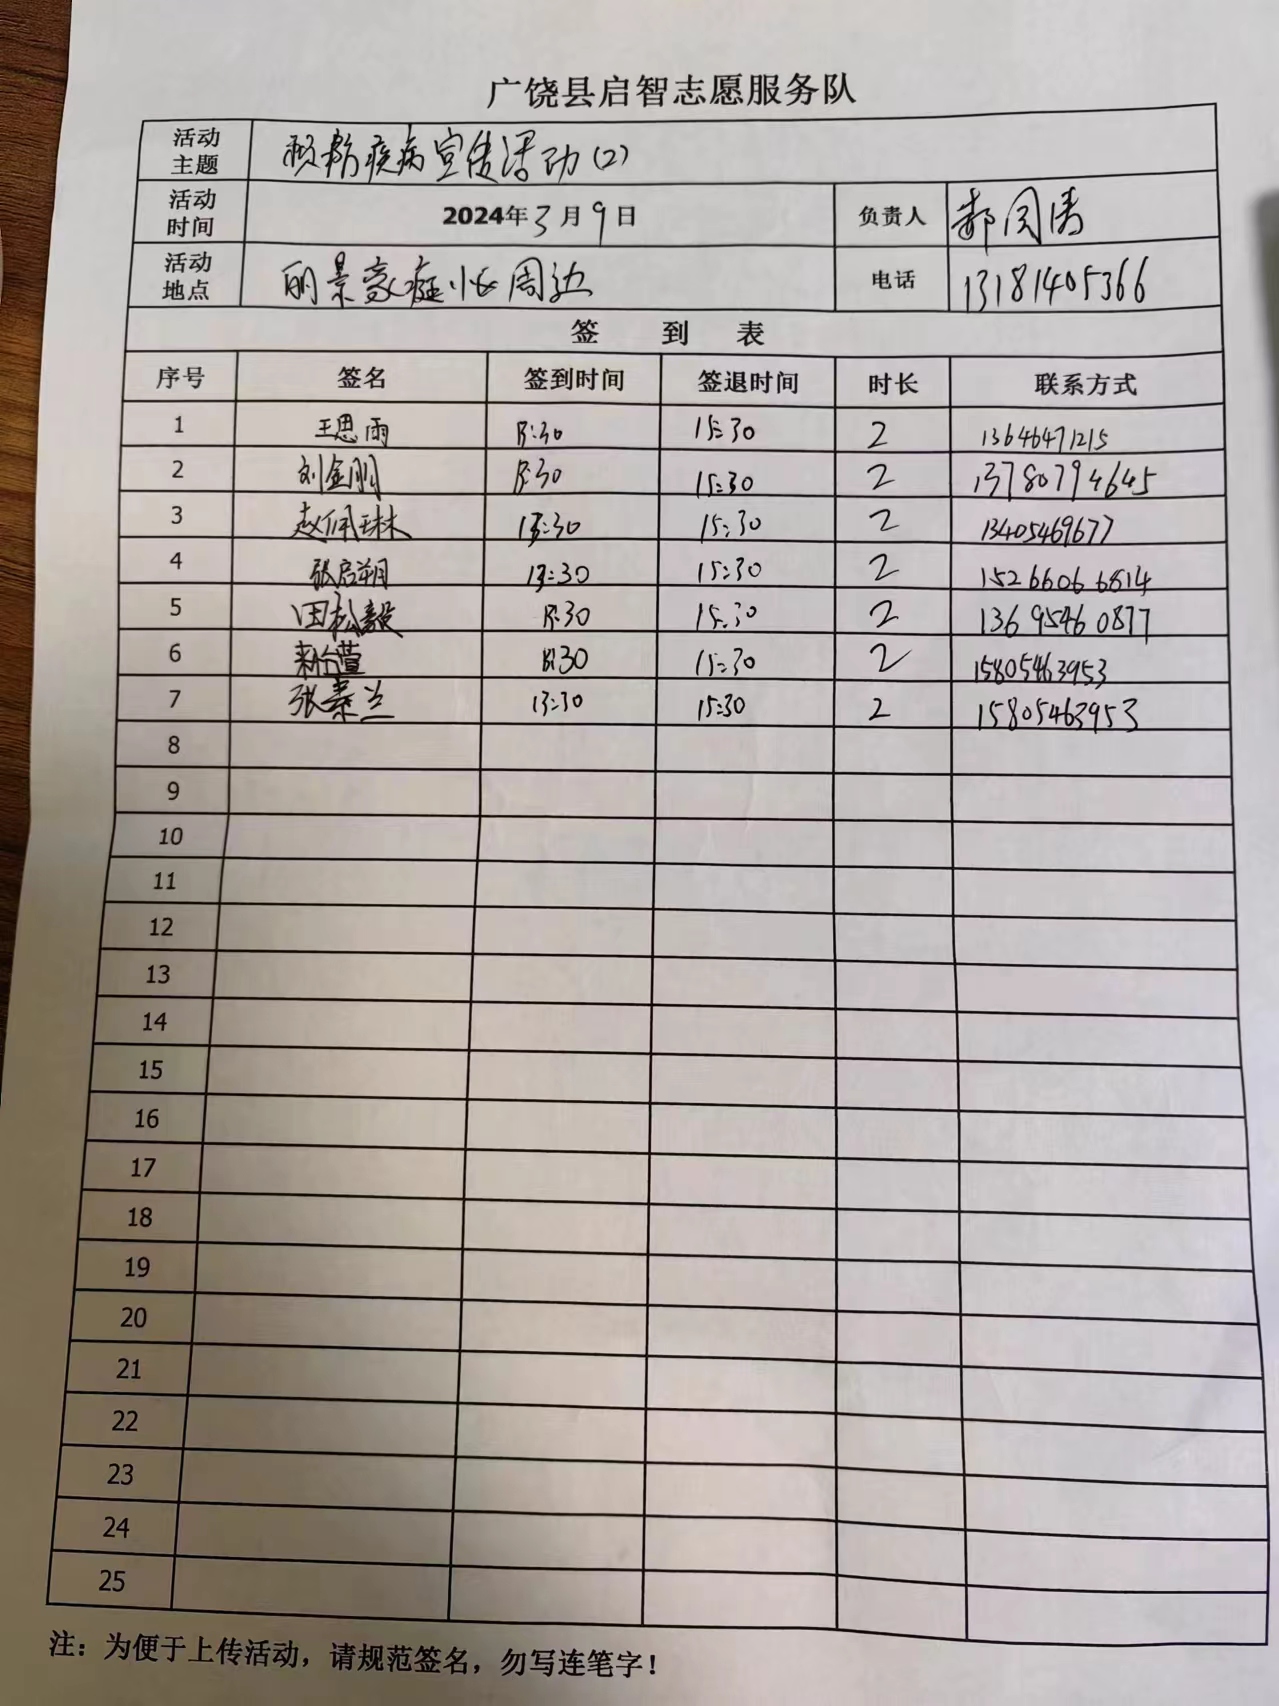 广饶县启智志愿服务队
活动主题 预防疾病宣传活动(2)
活动时间 2024年3月9日 负责人 郝同涛
活动地点 丽景豪庭小区周边 电话 13181405366
签 到 表
序号 签名 签到时间 签退时间 时长 联系方式
1 王思雨 13:30 15:30 2 13646471215
2 刘金刚 13:30 15:30 2 13780794645
3 赵佩琳 13:30 15:30 2 13405469677
4 张启朔 13:30 15:30 2 15266066814
5 田松毅 13:30 15:30 2 13695460877
6 13:30 15:30 2 15805463953
7 张素兰 13:30 15:30 2 15805463953
8
9
10
11
12
13
14
15
16
17
18
19
20
21
22
23
24
25
注：为便于上传活动，请规范签名，勿写连笔字！